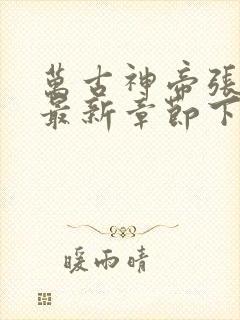 萬古神帝張
最新章節下
暖雨晴